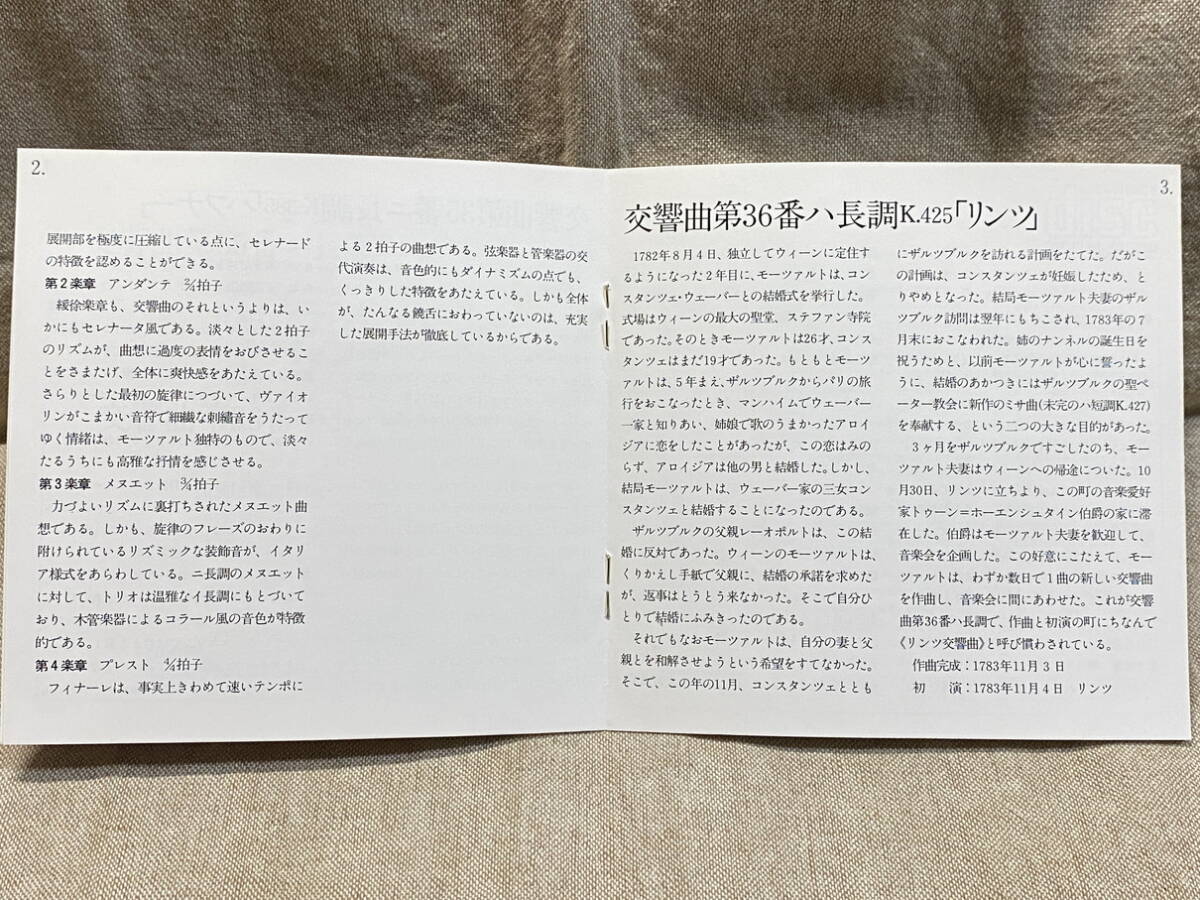 2.
展開部を極度に圧縮している点に、セレナード
の特徴を認めることができる。
第2楽章 アンダンテ 2/4拍子
緩徐楽章も、交響曲のそれというよりは、い
かにもセレナータ風である。淡々とした2拍子
のリズムが、曲想に過度の表情をおびさせるこ
とをさまたげ、全体に爽快感をあたえている。
さらりとした最初の旋律につづいて、ヴァイオ
リンがこまかい音符で細繊な刺繡音をうたって
ゆく情緒は、モーツァルト独特のもので、淡々
たるうちにも高雅な抒情を感じさせる。
第3楽章 メヌエット 3/4拍子
力づよいリズムに裏打ちされたメヌエット曲
想である。しかも、旋律のフレーズのおわりに
附けられているリズミックな装飾音が、イタリ
ア様式をあらわしている。ニ長調のメヌエット
に対して、トリオは温雅なイ長調にもとづいて
おり、木管楽器によるコラール風の音色が特徴
的である。
第4楽章 プレスト 4/4拍子
フィナーレは、事実上きわめて速いテンポに
よる2拍子の曲想である。弦楽器と管楽器の交
代演奏は、音色的にもダイナミズムの点でも、
くっきりした特徴をあたえている。しかも全体
が、たんなる饒舌におわっていないのは、充実
した展開手法が徹底しているからである。
3.
交響曲第36番ハ長調K.425「リンツ」
1782年8月4日、独立してウィーンに定住す
るようになった2年目に、モーツァルトは、コン
スタンツェ・ウェーバーとの結婚式を挙行した。
式場はウィーンの最大の聖堂、ステファン寺院
であった。そのときモーツァルトは26才、コンス
タンツェはまだ19才であった。もともとモーツ
ァルトは、5年まえ、ザルツブルクからパリの旅
行をおこなったとき、マンハイムでウェーバー
一家と知りあい、姉娘で歌のうまかったアロイ
ジアに恋をしたことがあったが、この恋はみの
らず、アロイジアは他の男と結婚した。しかし、
結局モーツァルトは、ウェーバー家の三女コン
スタンツェと結婚することになったのである。
ザルツブルクの父親レーオポルトは、この結
婚に反対であった。ウィーンのモーツァルトは、
くりかえし手紙で父親に、結婚の承諾を求めた
が、返事はとうとう来なかった。そこで自分ひ
とりで結婚にふみきったのである。
それでもなおモーツァルトは、自分の妻と父
親とを和解させようという希望をすてなかった。
そこで、この年の11月、コンスタンツェととも
にザルツブルクを訪れる計画をたてた。だがこ
の計画は、コンスタンツェが妊娠したため、と
りやめとなった。結局モーツァルト夫妻のザル
ツブルク訪問は翌年にもちこされ、1783年の7
月末におこなわれた。姉のナンネルの誕生日を
祝うためと、以前モーツァルトが心に誓ったよ
うに、結婚のあかつきにはザルツブルクの聖ペ
ーター教会に新作のミサ曲(未完のハ短調K.427)
を奉献する、という二つの大きな目的があった。
3ヶ月をザルツブルクですごしたのち、モー
ツァルト夫妻はウィーンへの帰途についた。10
月30日、リンツに立ちより、この町の音楽愛好
家トゥーン=ホーエンシュタイン伯爵の家に滞
在した。伯爵はモーツァルト夫妻を歓迎して、
音楽会を企画した。この好意にこたえて、モー
ツァルトは、わずか数日で1曲の新しい交響曲
を作曲し、音楽会に間にあわせた。これが交響
曲第36番ハ長調で、作曲と初演の町にちなんで
《リンツ交響曲》と呼び慣わされている。
作曲完成:1783年11月3日
初 演:1783年11月4日 リンツ